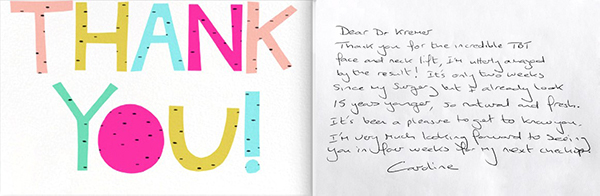 THANK
YOU!
Dear Dr Kremer
Thank you for the incredible TBT
face and neck lift, i'm utterly amazed
by the result! It's only two weeks
since my surgery but i already look
15 years younger, so natural and fresh.
It's been a pleasure to get to know you.
I'm very much looking forward to seeing
you in four weeks for my next checkup!
Caroline